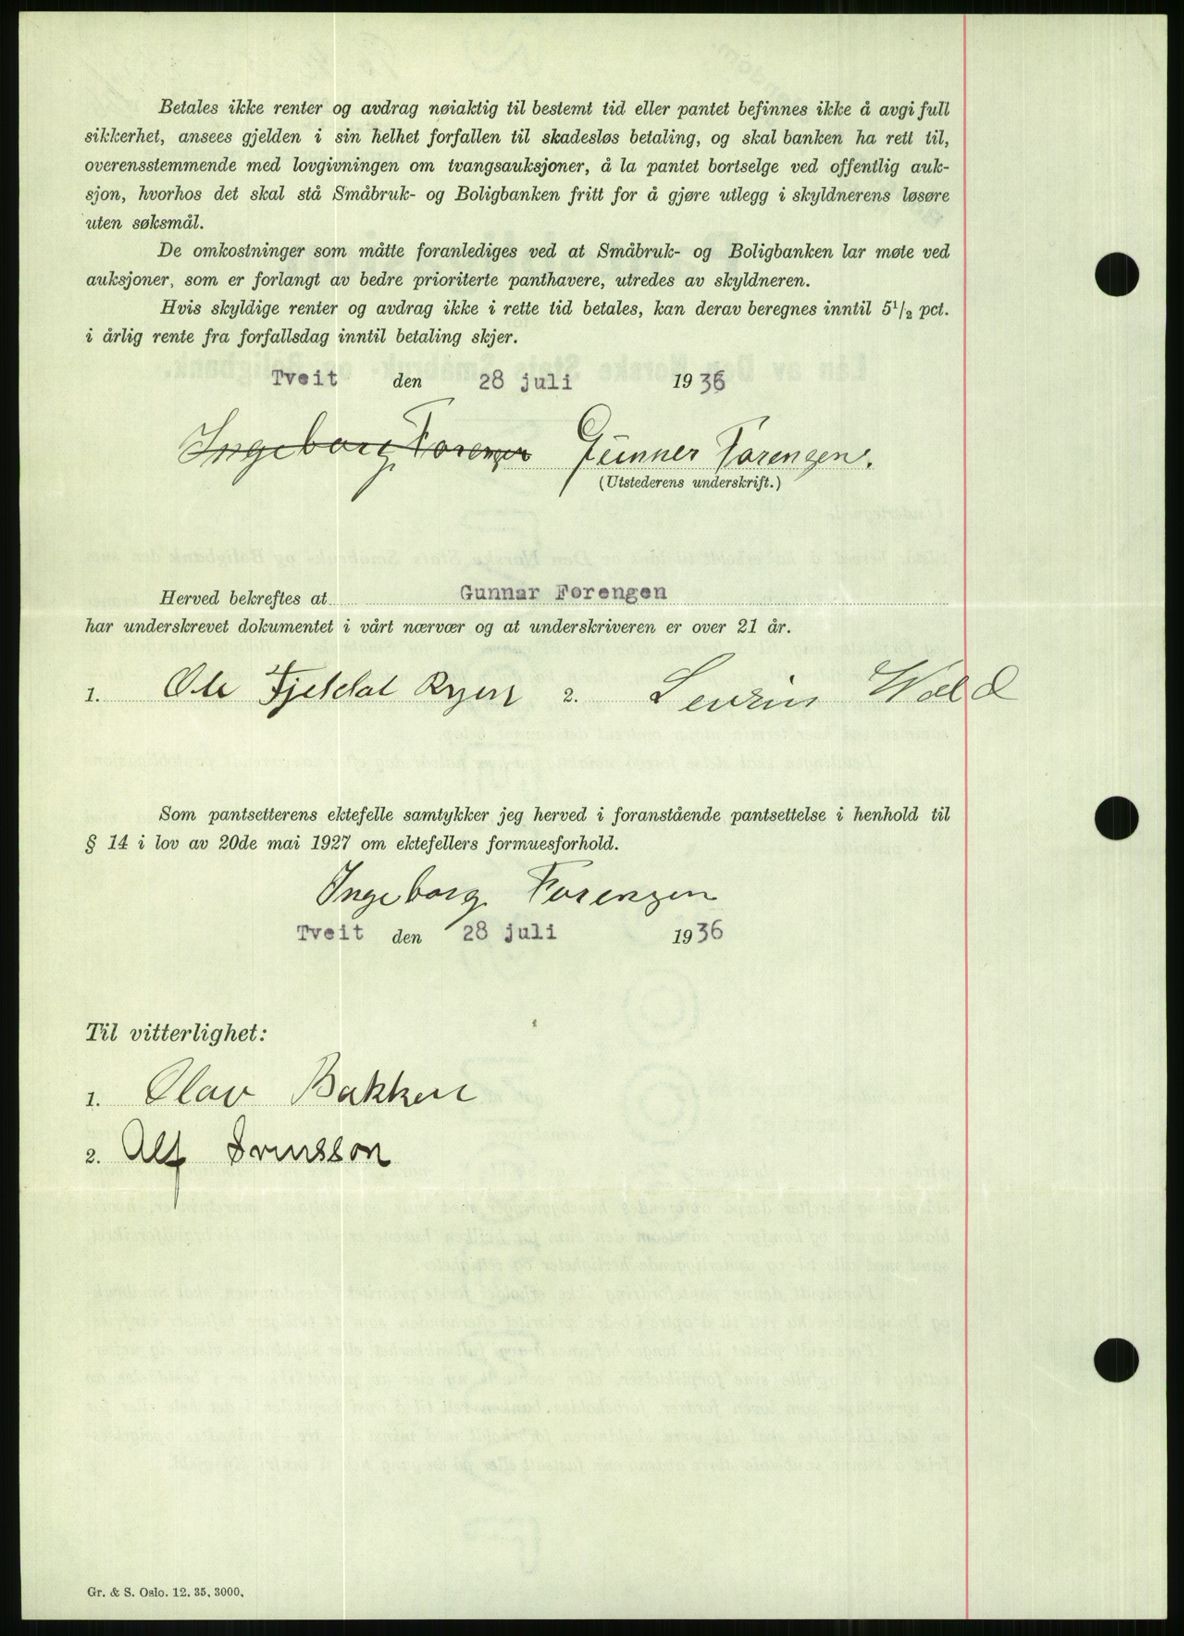 Betales ikke renter og avdrag nøiaktig til bestemt tid eller pantet befinnes ikke å avgi full
sikkerhet, ansees gjelden i sin helhet forfallen til skadesløs betaling, og skal banken ha rett til,
overensstemmende med lovgivningen om tvangsauksjoner, å la pantet bortselge ved offentlig auk-
sjon, hvorhos det skal stå Småbruk- og Boligbanken fritt for å gjøre utlegg i skyldnerens løsøre
uten søksmål.
De omkostninger som måtte foranlediges ved at Småbruk- og Boligbanken lar møte ved
auksjoner, som er forlangt av bedre prioriterte panthavere, utredes av skyldneren.
Hvis skyldige renter og avdrag ikke i rette tid betales, kan derav beregnes inntil 5 1/2 pct.
i årlig rente fra forfallsdag inntil betaling skjer.
Tveit den 28 juli 1936
Ingeborg Forengen Gunner Forengen.
(Utstederens underskrift.)
Herved bekreftes at Gunnar Førengen
har underskrevet dokumentet i vårt nærvær og at underskriveren er over 21 år.
1. Ole Fjeldal Ryen 2. Sevrin Wold
Som pantsetterens ektefelle samtykker jeg herved i foranstående pantsettelse i henhold til
§ 14 i lov av 20de mai 1927 om ektefellers formuesforhold.
Ingeborg Forengen
Tveit den 28 juli 1936
Til vitterlighet:
1. Olav Bakken
2. Alf Svensson
Gr. & S. Oslo. 12. 35. 3000.